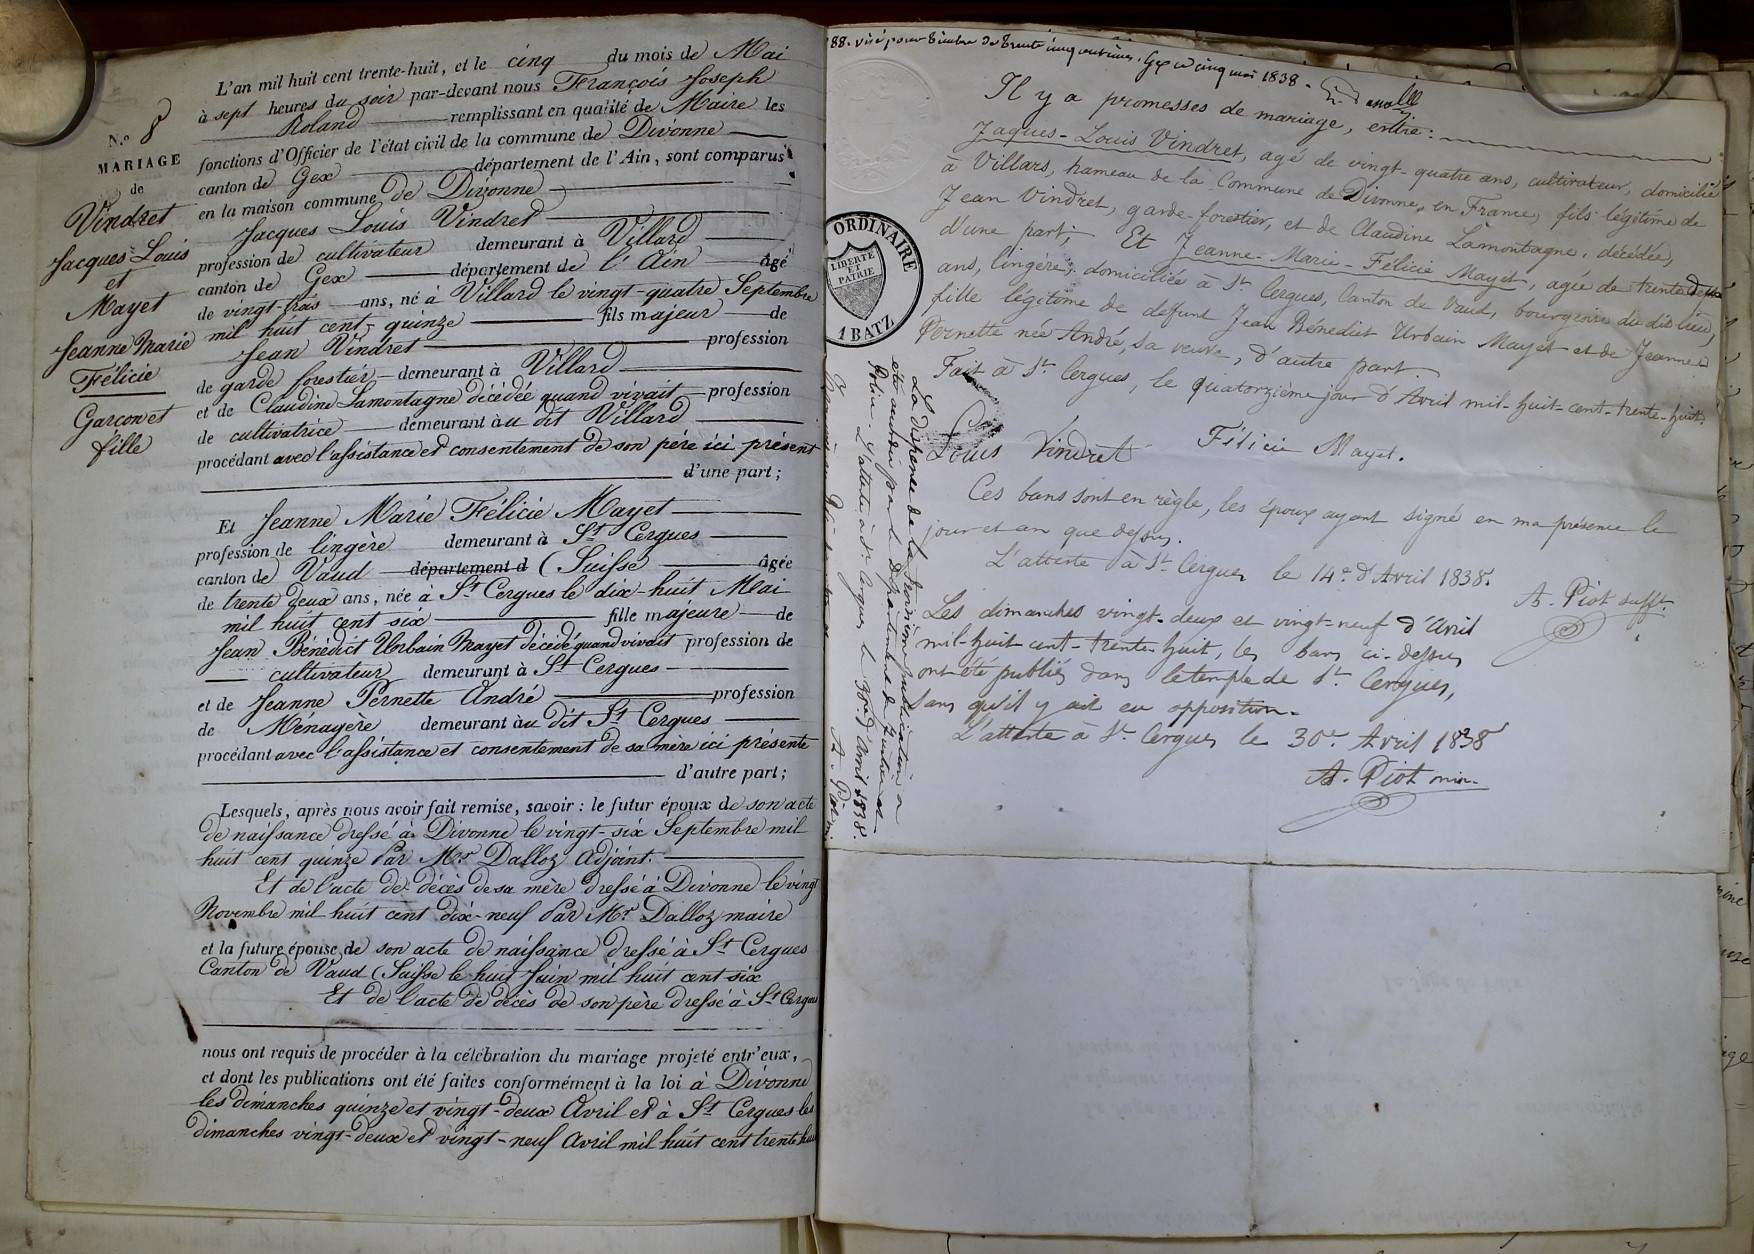 L'an mil huit cent trente-huit, et le cinq du mois de Mai
à sept heures du soir par-devant nous François Joseph
Roland remplissant en qualité de Maire les
fonctions d'Officier de l'état civil de la commune de Divonne
canton de Gex département de l'Ain, sont comparus
en la maison commune de Divonne
N.º 8
MARIAGE
de
Vindret
Jacques Louis
et
Mayet
Jeanne Marie
Félicie
Garçon et
fille
Jacques Louis Vindret
profession de cultivateur demeurant à Villard
canton de Gex département de l'Ain âgé
de vingt-trois ans, né à Villard le vingt-quatre Septembre
mil huit cent quinze fils majeur de
Jean Vindret profession
de garde forestier demeurant à Villard
et de Claudine Lamontagne décédée quand vivait profession
de cultivatrice demeurant àu dit Villard
procédant avec l'assistance et consentement de son père ici présent
d'une part;
Et Jeanne Marie Félicie Mayet
profession de lingère demeurant à St Cergues
canton de Vaud département d (Suisse âgée
de trente deux ans, née à St Cergues le dix-huit Mai
mil huit cent six fille majeure de
Jean Bénédict Urbain Mayet décédé quand vivait profession de
cultivateur demeurant à St Cergues
et de Jeanne Pernette André profession
de Ménagère demeurant àu dit St Cergues
procédant avec l'assistance et consentement de sa mère ici présente
d'autre part;
Lesquels, après nous avoir fait remise, savoir : le futur époux de son acte
de naissance dressé à Divonne le vingt-six Septembre mil
huit cent quinze Par Mr Dalloz Adjoint.
Et de l'acte de décès de sa mère dressé à Divonne le vingt
Novembre mil huit cent dix-neuf Par Mr Dalloz maire
et la future épouse de son acte de naissance dressé à St Cergues
Canton de Vaud (Suisse le huit Juin mil huit cent six
Et de l'acte de décès de son père dressé à St Cergues
nous ont requis de procéder à la célébration du mariage projeté entr'eux,
et dont les publications ont été faites conformément à la loi à Divonne
les dimanches quinze et vingt-deux Avril et à St Cergues les
dimanches vingt-deux et vingt-neuf Avril mil huit cent trente huit
88. visé pour timbre de trente cinq centimes, Gex ce cinq mai 1838.
Il y a promesses de mariage, entre:
Jaques-Louis Vindret, agé de vingt-quatre ans, cultivateur, domicilié
à Villars, hameau de la Commune de Divonne, en France, fils légitime de
Jean Vindret, garde-forestier, et de Claudine Lamontagne, décédée,
d'une part; Et Jeanne-Marie-Félicie Mayet, agée de trente deux
ans, lingère, domiciliée à St Cergues, Canton de Vaud, bourgeoise du dit lieu,
fille légitime de deffunt Jean Bénédict Urbain Mayet et de Jeanne
Pernette née André, sa veuve, d'autre part.
Fait à St Cergues, le quatorzième jour d'Avril mil-huit-cent-trente-huit.
Louis Vindret Félicie Mayet.
Ces bans sont en règle, les époux ayant signé en ma présence le
jour et an que dessus.
L'atteste à St Cergues le 14e d'Avril 1838.
A. Piot suff.
Les dimanches vingt-deux et vingt-neuf d'Avril
mil-huit-cent-trente-huit, les bans ci-dessus
ont été publiés dans le temple de St Cergues,
sans qu'il y ait eu opposition.
L'atteste à St Cergues le 30e Avril 1838
A. Piot min.
ORDINAIRE
LIBERTÉ
ET
PATRIE
1 BATZ
La dispense de la troisième publication a
été accordée par le Département de Justice et
Police. L'atteste à St Cergues le 30e d'Avril 1838.
A. Piot min.